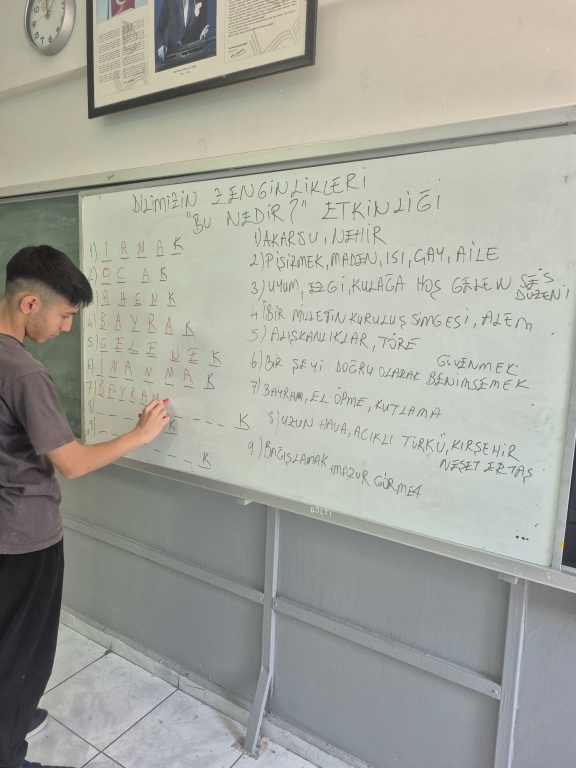 DİLİMİZİN ZENGİNLİKLERİ
"BU NEDİR?" ETKİNLİĞİ
1) I R M A K
2) O C A K
3) A H E N K
4) B A Y R A K
5) G E L E N E K
6) İ N A N M A K
7) B A Y R A M
8) _ _ _ _ K _ _ _ K
9) _ _ _ _ _ _ K
1) AKARSU, NEHİR
2) PİŞİRMEK, MADEN, ISI, ÇAY, AİLE
3) UYUM, EZGİ, KULAĞA HOŞ GELEN SES
DÜZENİ
4) BİR MİLLETİN KURULUŞ SİMGESİ, ALEM
5) ALIŞKANLIKLAR, TÖRE
6) BİR ŞEYİ DOĞRU OLARAK BENİMSEMEK
GÜVENMEK
7) BAYRAM, EL ÖPME, KUTLAMA
8) UZUN HAVA, ACIKLI TÜRKÜ, KIRŞEHİR
NEŞET ERTAŞ
9) BAĞIŞLAMAK, MAZUR GÖRMEK